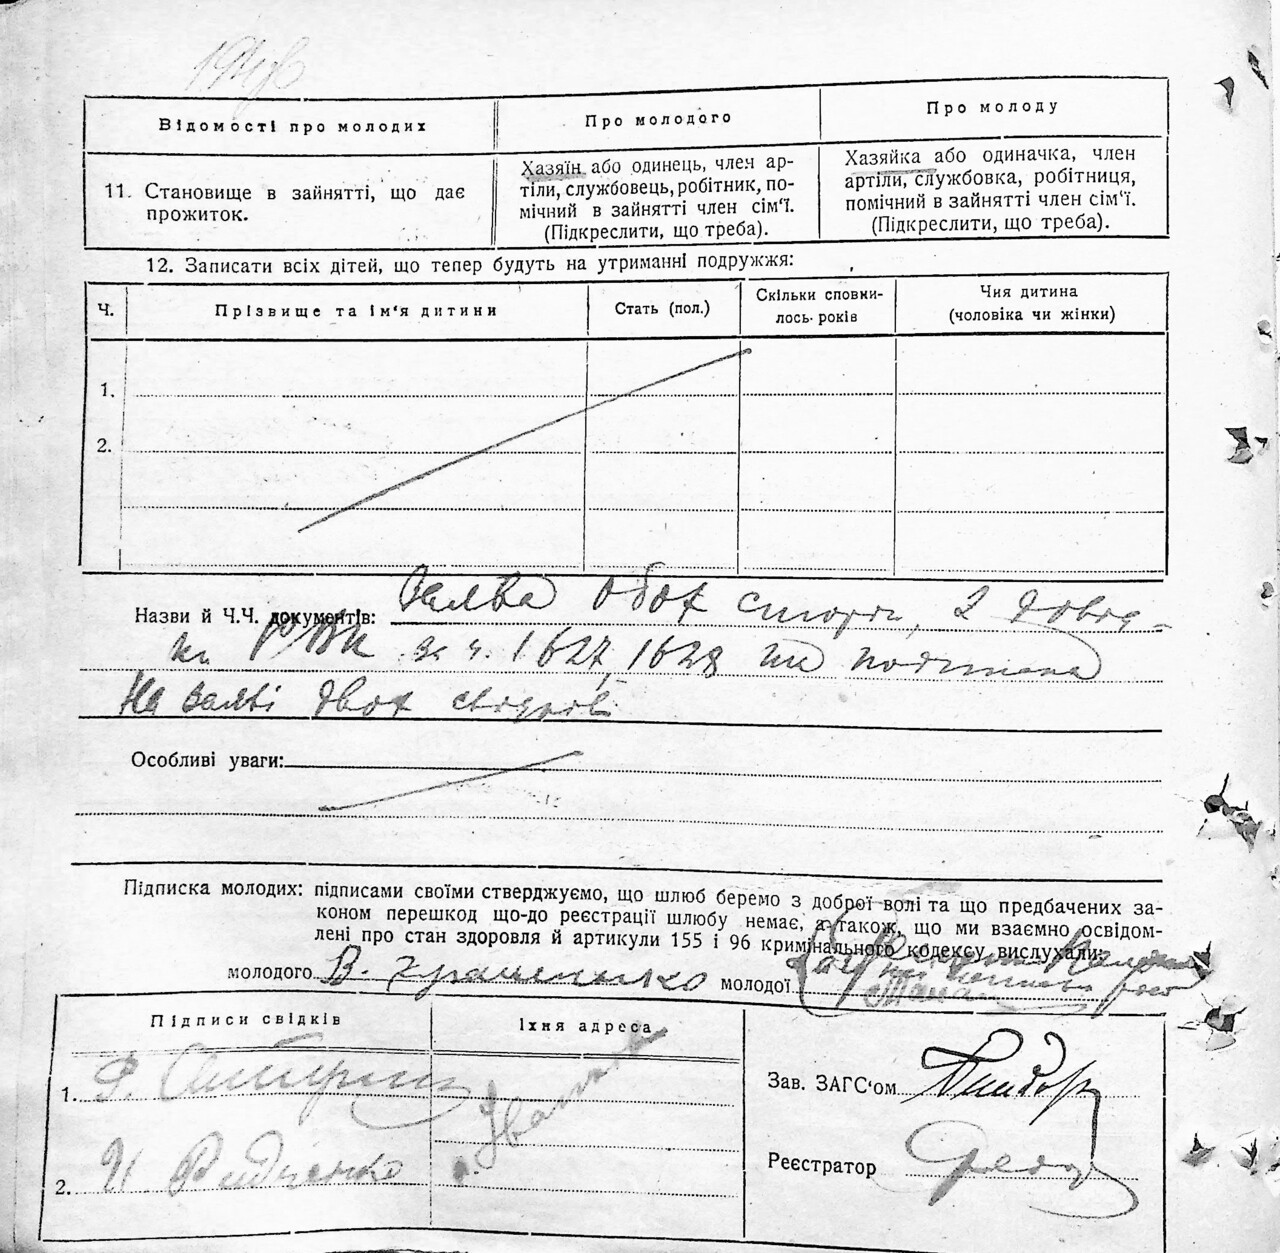 Відомості про молодих
Про молодого
Про молоду
11. Становище в зайнятті, що дає
прожиток.
Хазяїн або одинець, член ар-
тіли, службовець, робітник, по-
мічний в зайнятті член сім'ї.
(Підкреслити, що треба).
Хазяйка або одиначка, член
артіли, службовка, робітниця,
помічний в зайнятті член сім'ї.
(Підкреслити, що треба).
12. Записати всіх дітей, що тепер будуть на утриманні подружжя:
Ч.
Прізвище та ім'я дитини
Стать (пол.)
Скільки сповни-
лось років
Чия дитина
(чоловіка чи жінки)
1.
2.
Назви й Ч.Ч. документів: Заява обох сторін, 2 довід-
ки РВК за ч. 1627, 1628 та
На заяві двох свідків
Особливі уваги:
Підписка молодих: підписами своїми стверджуємо, що шлюб беремо з доброї волі та що предбачених за-
коном перешкод що-до реєстрації шлюбу немає, а також, що ми взаємно освідом-
лені про стан здоров'я й артикули 155 і 96 кримінального кодексу вислухали:
молодого В.
молодої
Підписи свідків
Їхня адреса
1.
2. И
Зав. ЗАГС'ом
Реєстратор